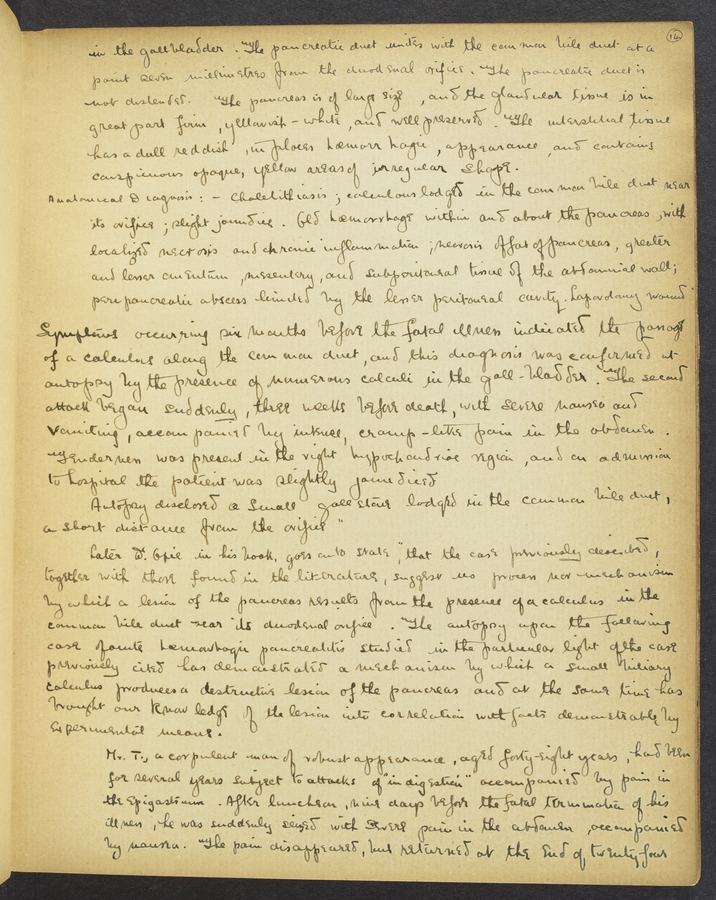 14
in the gall bladder. The pancreatic duct unites with the common bile duct at a
point seven millimetres from the duodenal orifice. The pancreatic duct is
not distended. The pancreas is of large size, and the glandular tissue is in
great part firm, yellowish-white, and well preserved. The interstitial tissue
has a dull reddish, in places hæmorrhagic, appearance, and contains
conspicuous opaque, yellow areas of irregular shape.
Anatomical Diagnosis: - Cholelithiasis; calculous lodged in the common bile duct near
its orifice; slight jaundice. Old hæmorrhage within and about the pancreas, with
localized necrosis and chronic inflammation; necrosis of fat of pancreas, greater
and lesser omentum, mesentery, and subperitoneal tissue of the abdominal wall;
peripancreatic abscess limited by the lesser peritoneal cavity. Laporotomy wound
Symptoms occurring six months before the fatal illness indicated the passage
of a calculus along the common duct, and this diagnosis was confirmed at
autopsy by the presence of numerous calculi in the gall-bladder. The second
attack began suddenly, three weeks before death, with severe nausea and
vomiting, accompanied by intense, cramp-like pain in the abdomen.
Tenderness was present in the right hypochondriac region, and on admission
to hospital the patient was slightly jaundiced
Autopsy disclosed a small gallstone lodged in the common bile duct,
a short distance from the orifice"
Later D. Opie in his book, goes on to state, "that the case previously described,
together with those found in the literature, suggest us process nor mechanism
by which a lesion of the pancreas results from the presence of a calculus in the
common bile duct near its duodenal orifice. The autopsy upon the following
case of acute hæmorrhagic pancreatitis studied in the particular light of the case
previously cited has demonstrated a mechanism by which a small biliary
calculus produces a destructive lesion of the pancreas and at the same time has
brought our knowledge of the lesion into correlation with facts demonstrable by
experimental means.
Mr. T., a corpulent man of robust appearance, aged forty-eight years, had been
for several years subject to attacks of "indigestion" accompanied by pain in
the epigastrium. After luncheon, nine days before the fatal termination of his
illness, he was suddenly seized with severe pain in the abdomen, accompanied
by nausea. The pain disappeared, but returned at the end of twenty-four